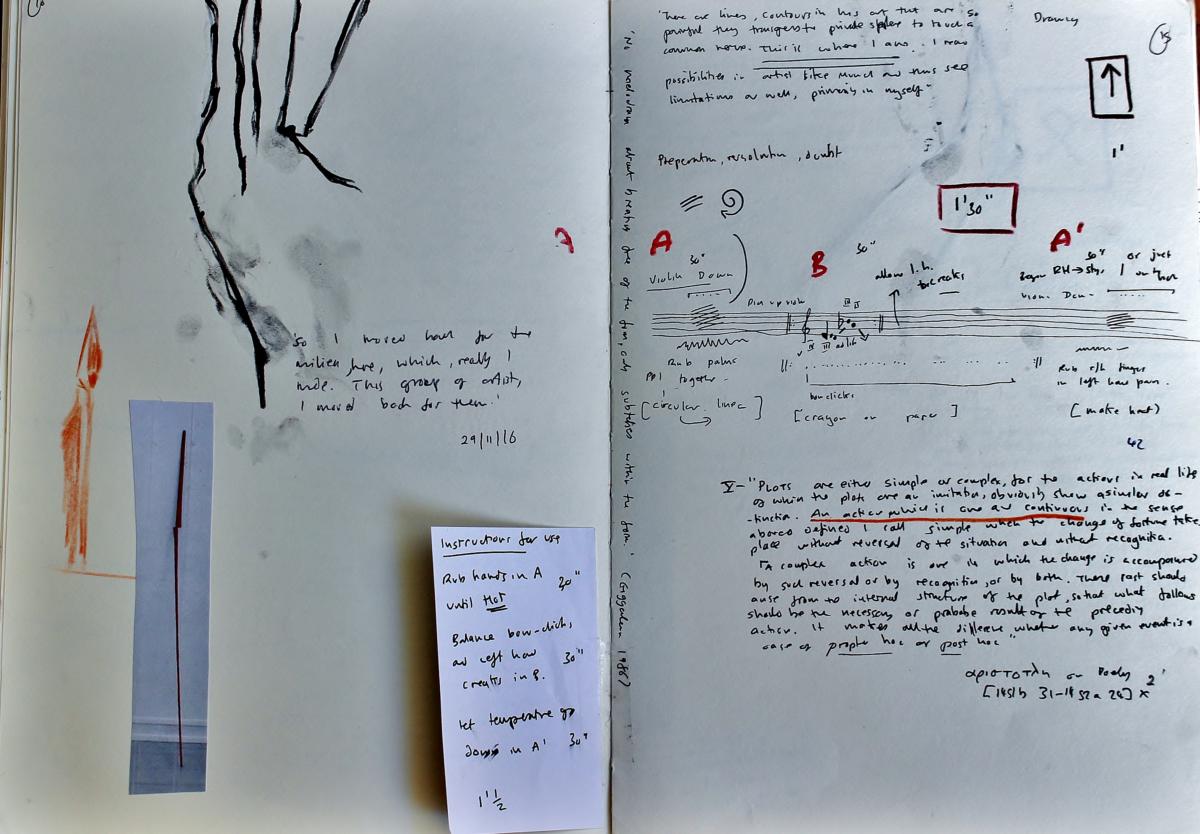 So I moved back for the
milieu here, which, really I
made. This group of artist,
I moved back for them.'
29/11/16
Instructions for use
Rub hands in A 30"
until Hot
Balance bow-clicks,
and left hand 30"
creaks in B.
Let temperature go
down in A' 30"
1'1/2
'No melodrama about breaking free of the form, only subtleties within the form.' (1986)
'There are lines, contours in his art that are so
powerful they transgress private sphere to touch a
common nerve. This is where I am. I
possibilities in artist like Munch and thus see
limitations as well, primarily in myself"
Drawing
15
1'
Preparation, resolution, doubt
1'30"
A
A
30"
Violin Down
B
30"
allow l.h.
creaks
A'
30" or just
Began RH → Stop, 1
violin Down
Pin up violin
ad lib
Rub palms
together
[circular lines]
bow clicks
[crayon on paper]
Rub r/h finger
in left hand palm.
[make heat)
42
V- "PLOTS are either simple or complex, for the actions in real life
of which the plots are an imitation, obviously show a similar dis-
-tinction. An action which is one and continuous in the sense
above defined I call simple when the change of fortune takes
place without reversal of the situation and without recognition.
"A complex action is one in which the change is accompanied
by such reversal or by recognition, or by both. These last should
arise from the internal structure of the plot, so that what follows
should be the necessary or probable result of the preceding
action. It makes all the difference whether any given event is a
case of propter hoc or post hoc"
on Poetry
[1451b 31-1452a 20] x 2'